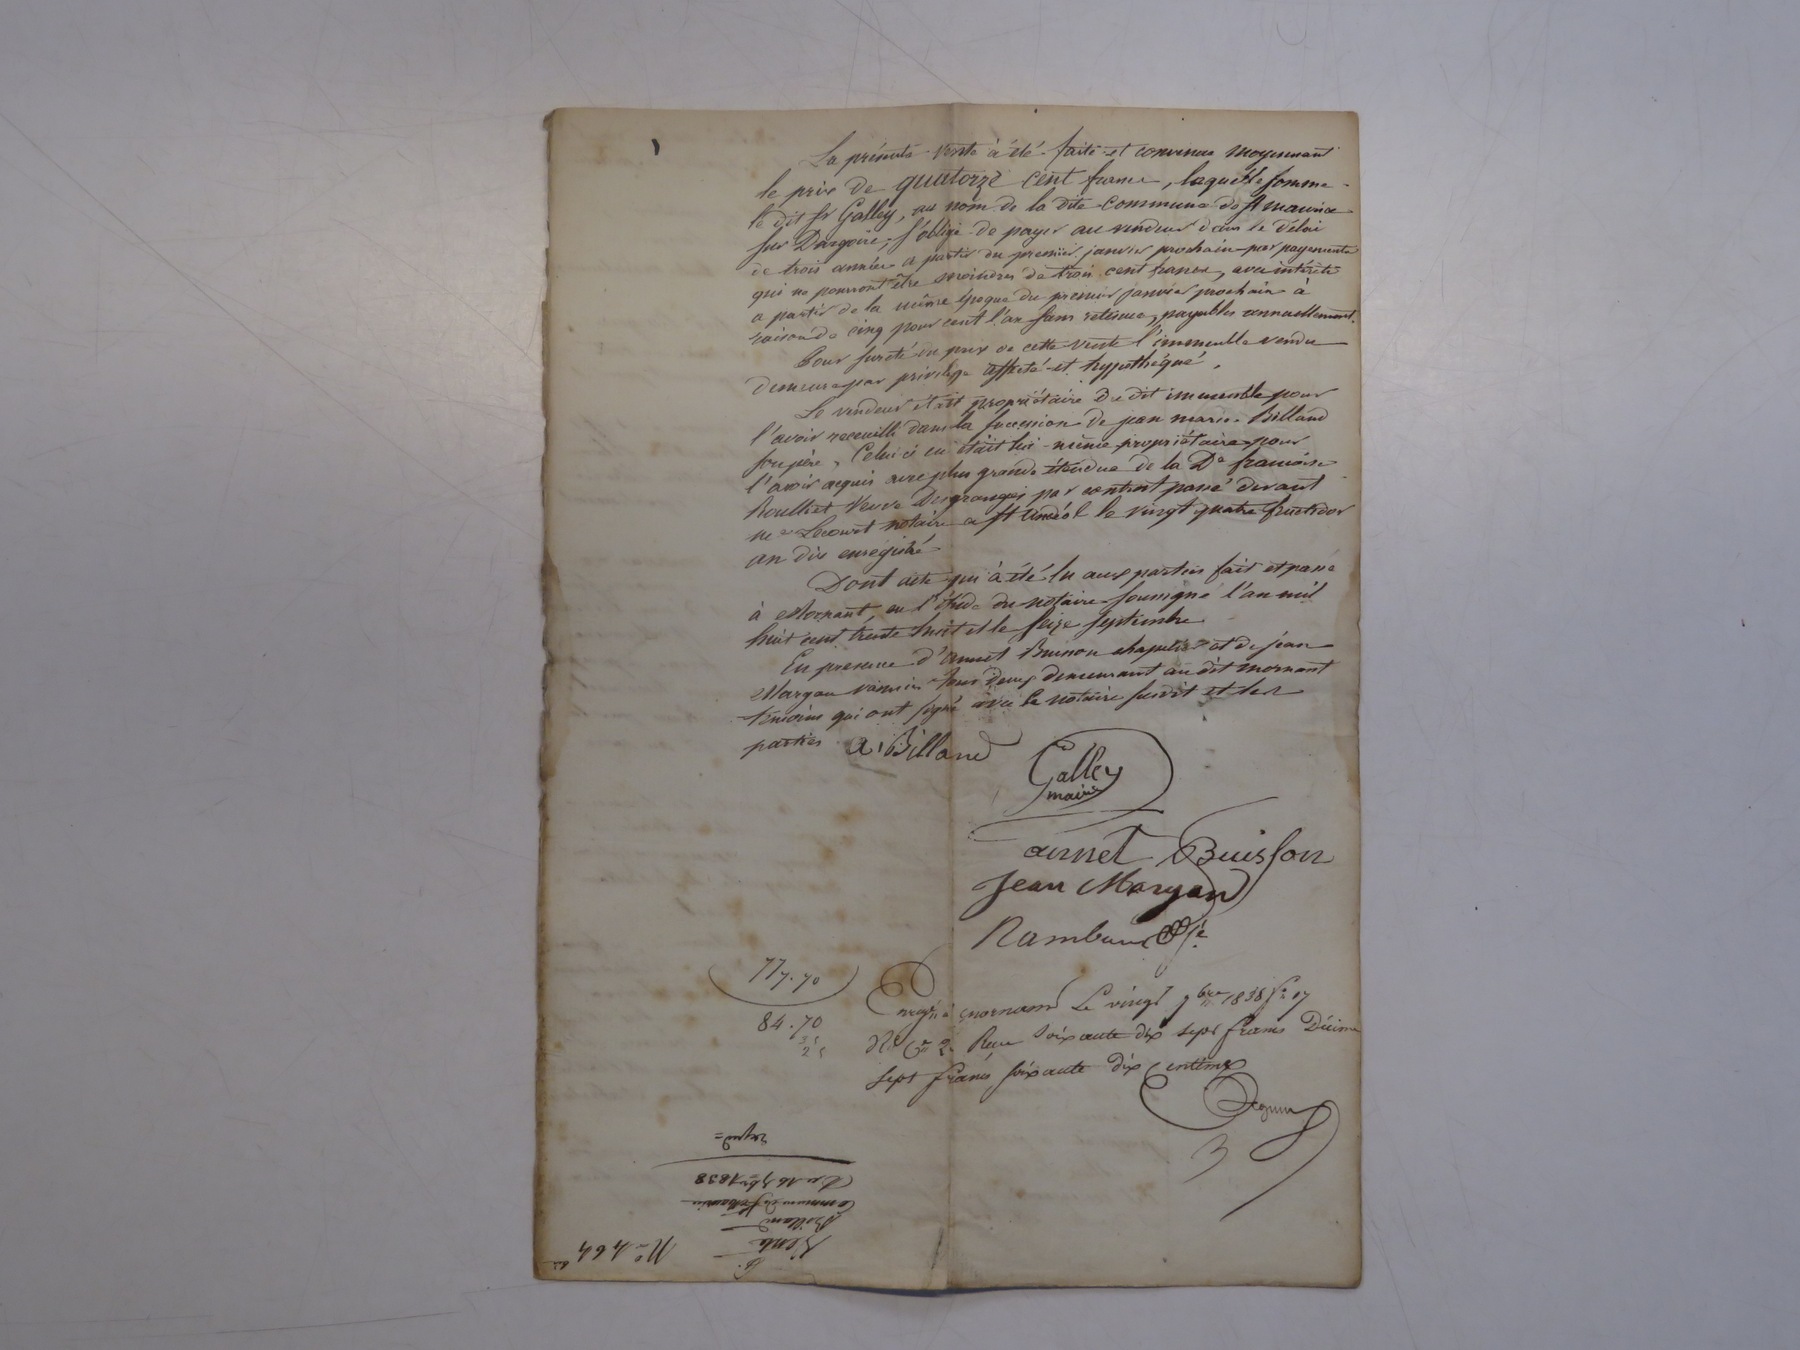 La présente vente à été faite et convenue moyennant
le prix de quatorze cent francs, laquelle somme
le dit Sr Galley, au nom de la dite commune de St maurice
sur Dargoire, s'oblige de payer au vendeur dans le délai
de trois années a partir du premier janvier prochain par payements
qui ne pourront être moindres de trois cent francs, avec intérêts
a partir de la même époque du premier janvier prochain à
raison de cinq pour cent l'an sans retenue, payables annuellement.
Pour sureté du prix de cette vente l'immeuble vendu
demeure par privilège affecté et hypothéqué.
Le vendeur était propriétaire du dit immeuble pour
l'avoir receuilli dans la succession de jean marie Billand
son père, Celui ci en était lui-même propriétaire pour
l'avoir acquis avec plus grande étendue de la De francoise
Veuve Desgranges par contrat passé devant
me Lecourt notaire a St le vingt quatre fructidor
an dix enregistré
Dont acte qui à été lu aux parties fait et passé
à Mornant, en l'étude du notaire soussigné l'an mil
huit cent trente huit et le seize septembre
En presence d'annet Buisson chapelier et de jean
Margan tous deux demeurant au dit mornant
témoins qui ont signé avec le notaire susdit et les
parties a. Billand
Galley
maire
annet Buisson
Jean Margan
Rambaud
77.70
84.70
Enregé à mornant Le vingt 7bre 1838 fo 17
Ro Ce 2. Reçu soixante dix sept francs Décime
sept francs soixante dix Centimes
3
No 464
Vente
Billand
Commune de St Maurice
Du 16 7bre 1838